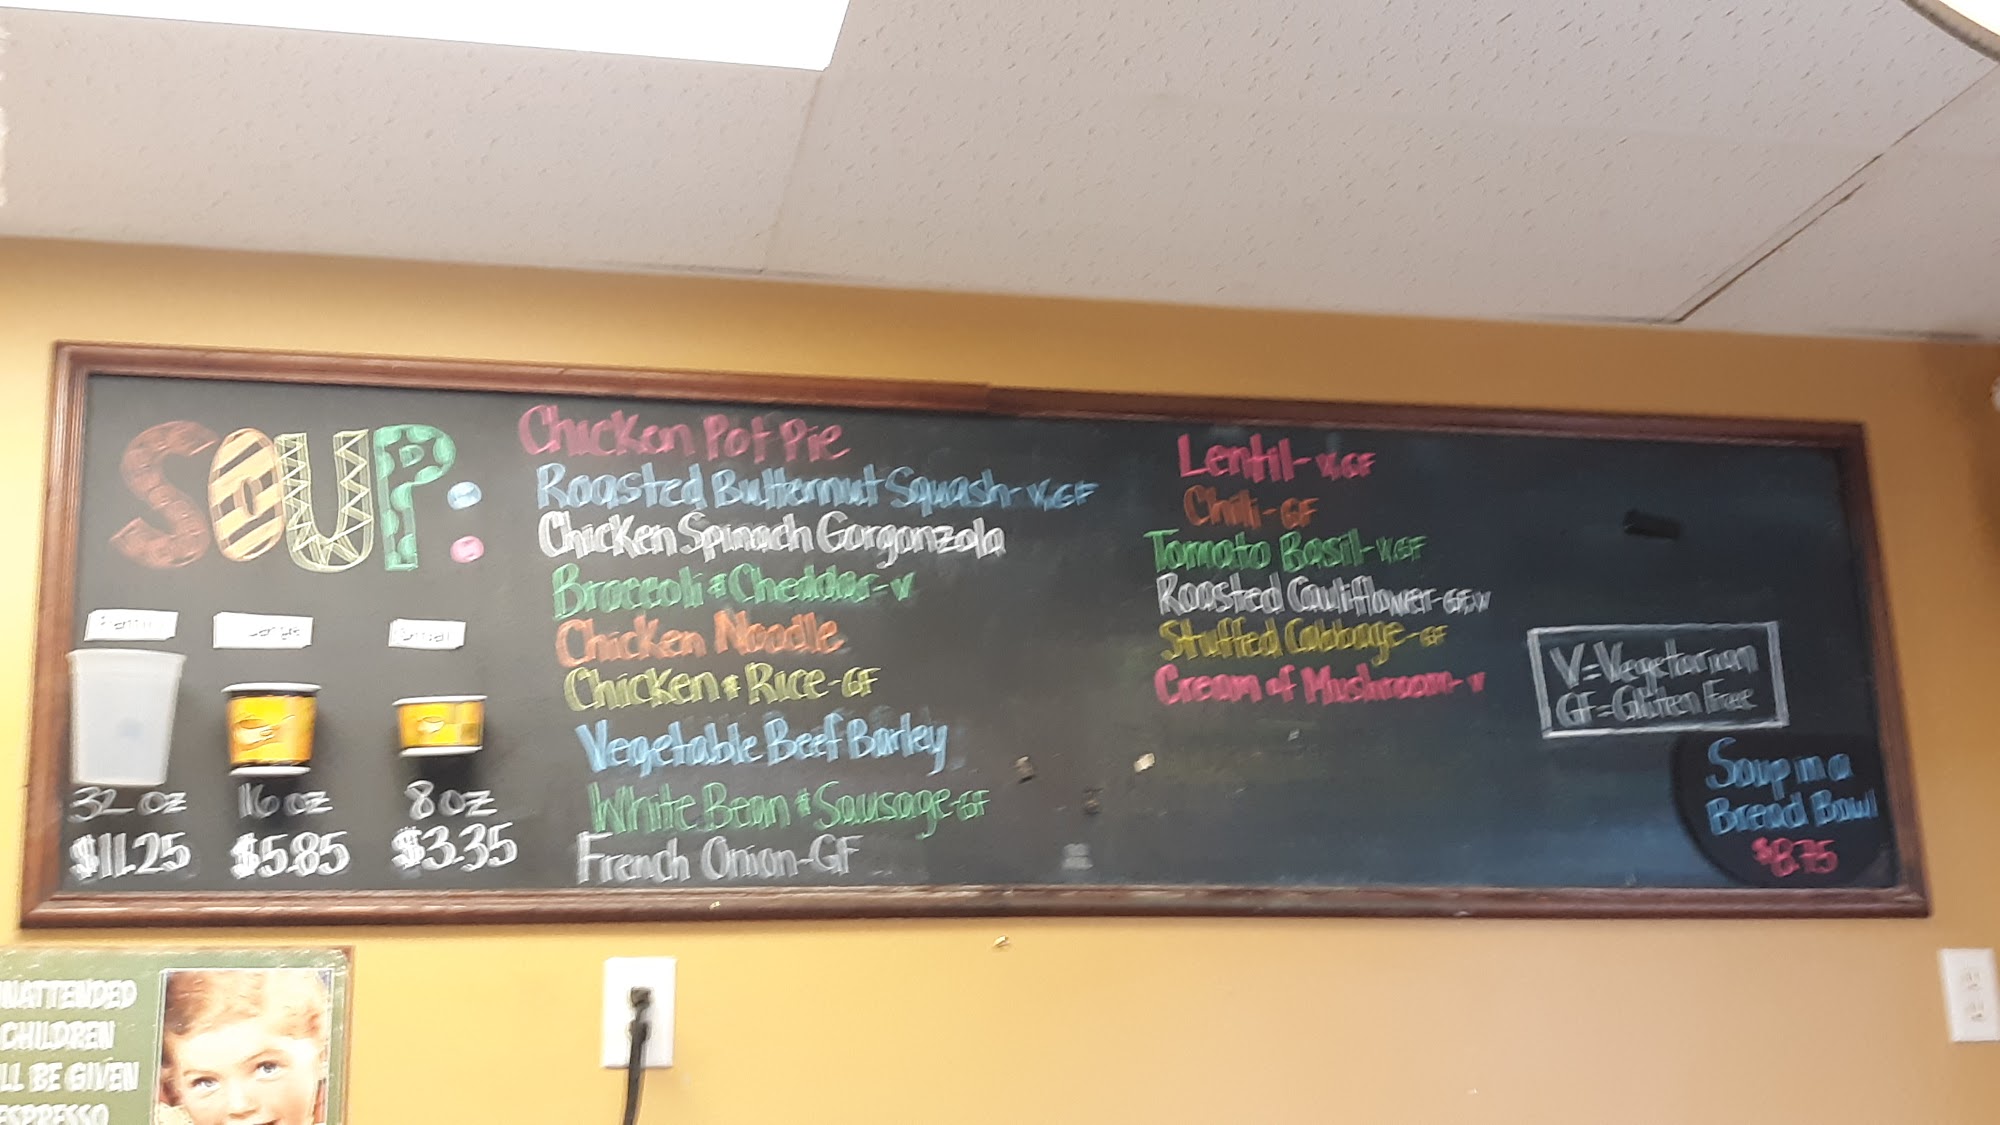 SOUP:
Large
Small
32 oz
16 oz
8 oz
$11.25
$5.85
$3.35
Chicken Pot Pie
Roasted Butternut Squash-V,GF
Chicken Spinach Gorgonzola
Broccoli & Cheddar-V
Chicken Noodle
Chicken & Rice-GF
Vegetable Beef Barley
White Bean & Sausage-GF
French Onion-GF
Lentil-V,GF
Chili-GF
Tomato Basil-V,GF
Roasted Cauliflower-GF,V
Stuffed Cabbage-GF
Cream of Mushroom-V
V=Vegetarian
GF=Gluten Free
Soup in a
Bread Bowl
$8.75
NATTENDED
CHILDREN
LL BE GIVEN
ESPRESSO